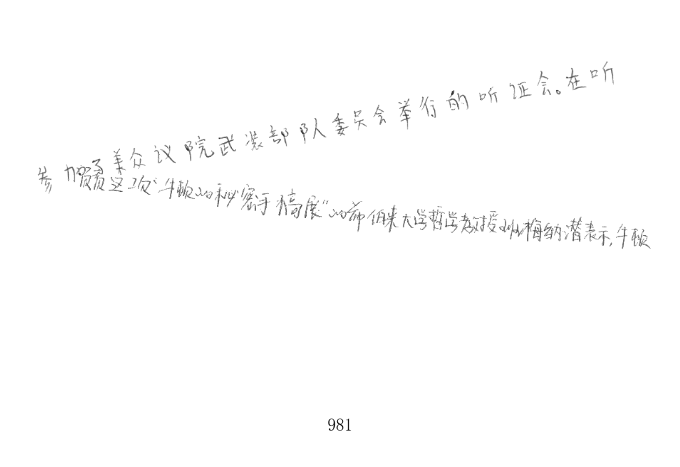 参加了美众议院武装部队委员会举行的听证会。在听
贾这次“牛顿的秘密手稿展”的希伯来大学哲学教授班梅纳潜表示,牛顿
981